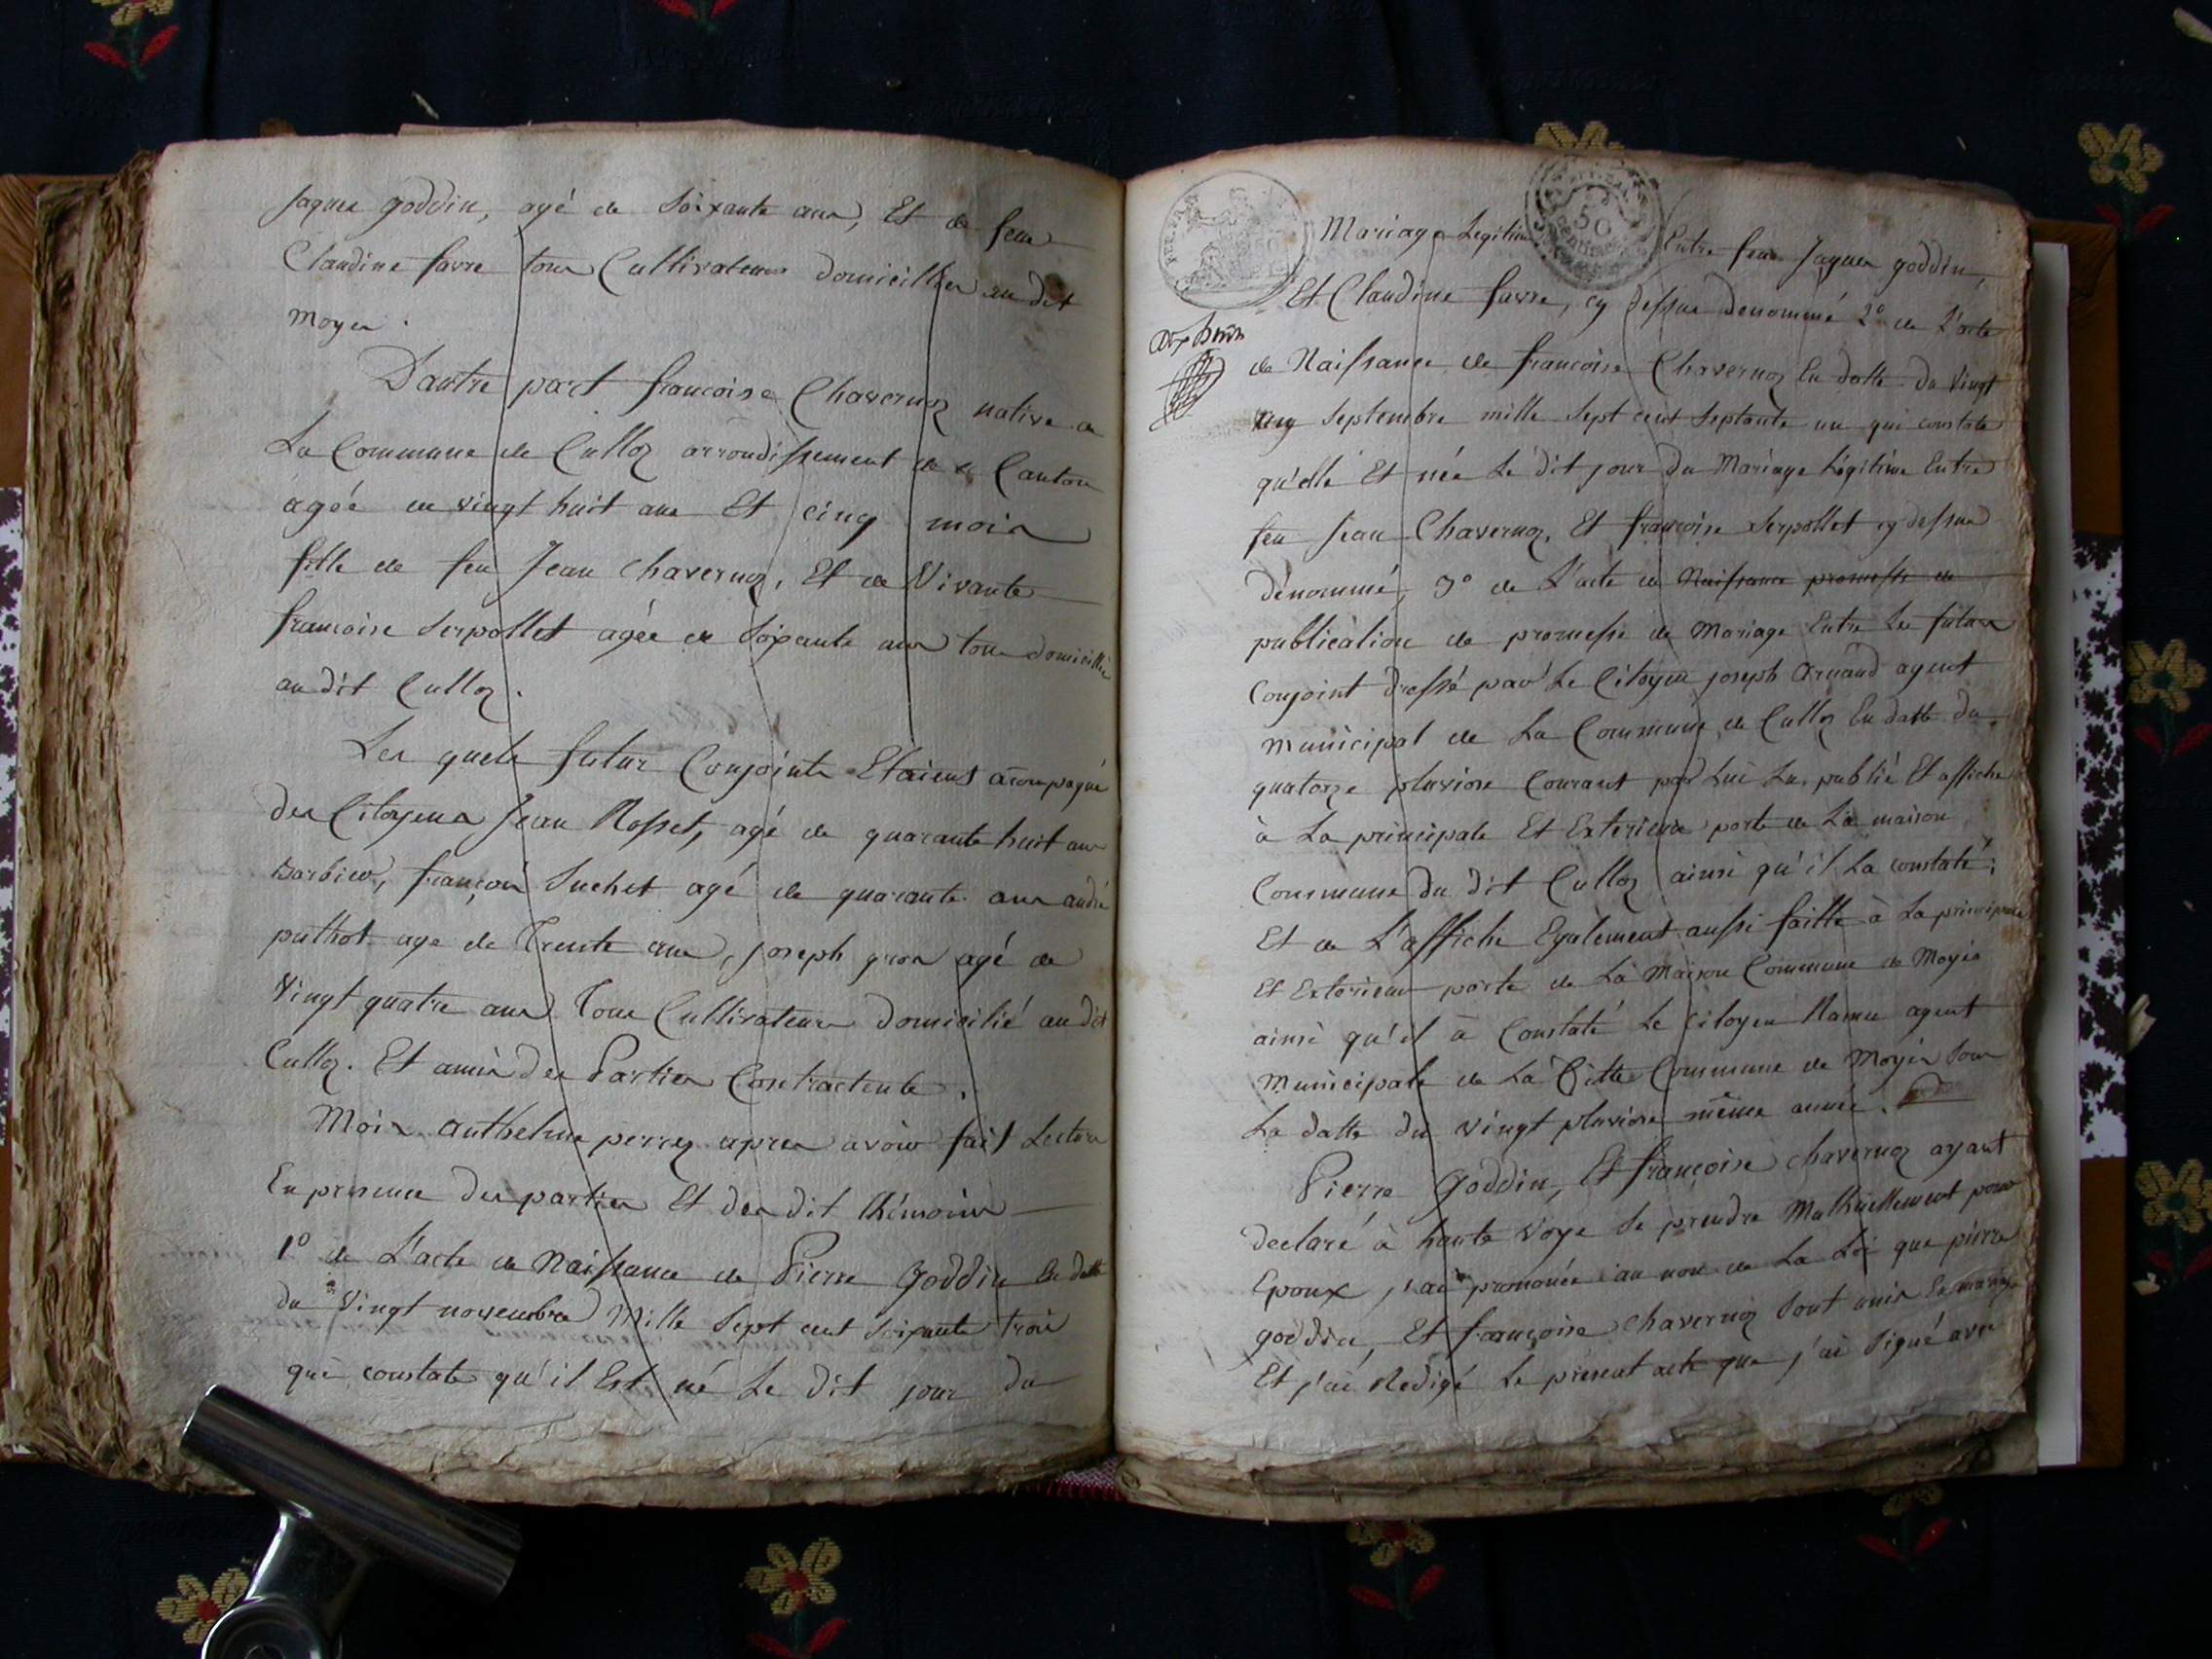 Jaques goddin, agé de soixante ans, Et de feue
Claudine favre tous Cultivateurs domicilliés au dit
moyes.
Dautre part francoise Chavernoz native de
La Commune de Culloz arrondissement de ce Canton
agée de vingt huit ans Et cinq mois
fille de feu Jean Chavernoz, Et de Vivante
francoise Serpollet agée de soixante ans tous domicillié
au dit Culloz.
Les quels futur Conjoints Etaient acompagné
des Citoyens Jean Rosset, agé de quarante huit ans
Barbier, françois Suchet agé de quarante ans andré
puthod agé de Trente ans, joseph gros agé de
Vingt quatre ans Tous Cultivateurs domicilié au dit
Culloz. Et amis des Parties Contractente.
Mois anthelme perrez apres avoir fait Lecture
En presence des parties Et des dit thémoins
1° de L'acte de Naissance de Pierre Goddin En datte
du vingt novembre Mille Sept cent soixante trois
qui constate qu'il Est né Le dit jour du
50
Mariage Legitime Entre feu Jaques goddin,
Et Claudine favre, cy dessus denommé 2° de L'acte
de Naissance de francoise Chavernoz En datte du Vingt
cinq Septembre mille Sept cent Septante un qui constate
qu'elle Et née Le dit jour du Mariage Légitime Entre
feu Jean Chavernoz, Et francoise Serpollet cy dessus
dénommé, 3° de L'acte de Naissance promesse de
publication de promesse de Mariage Entre Les futurs
Conjoint dressé par Le Citoyen joseph Arnaud agent
municipal de La Commune de Culloz En datte du
quatorze pluviose Courant par Lui Lu, publié Et affiché
à La principale Et Exterieure porte de La maison
Commune du dit Culloz ainsi qu'il La constaté;
Et de L'affiche Egalement aussi faitte à La principale
Et Exterieure porte de La Maison Commune de Moyés
ainsi qu'il à Constaté Le Citoyen Ramu agent
Municipale de La Ditte Commune de Moyés Sous
La datte du vingt pluviose même année.
Pierre Goddin, Et françoise chavernoz ayant
declaré à haute Voye Se prendre Muthuellement pour
Epoux j'ai prononée au nom de La Loi que pierre
goddin, Et françoise chavernoz Sont unis En mariage
Et j'ai Redigé Le présent acte que j'ai Signé avec